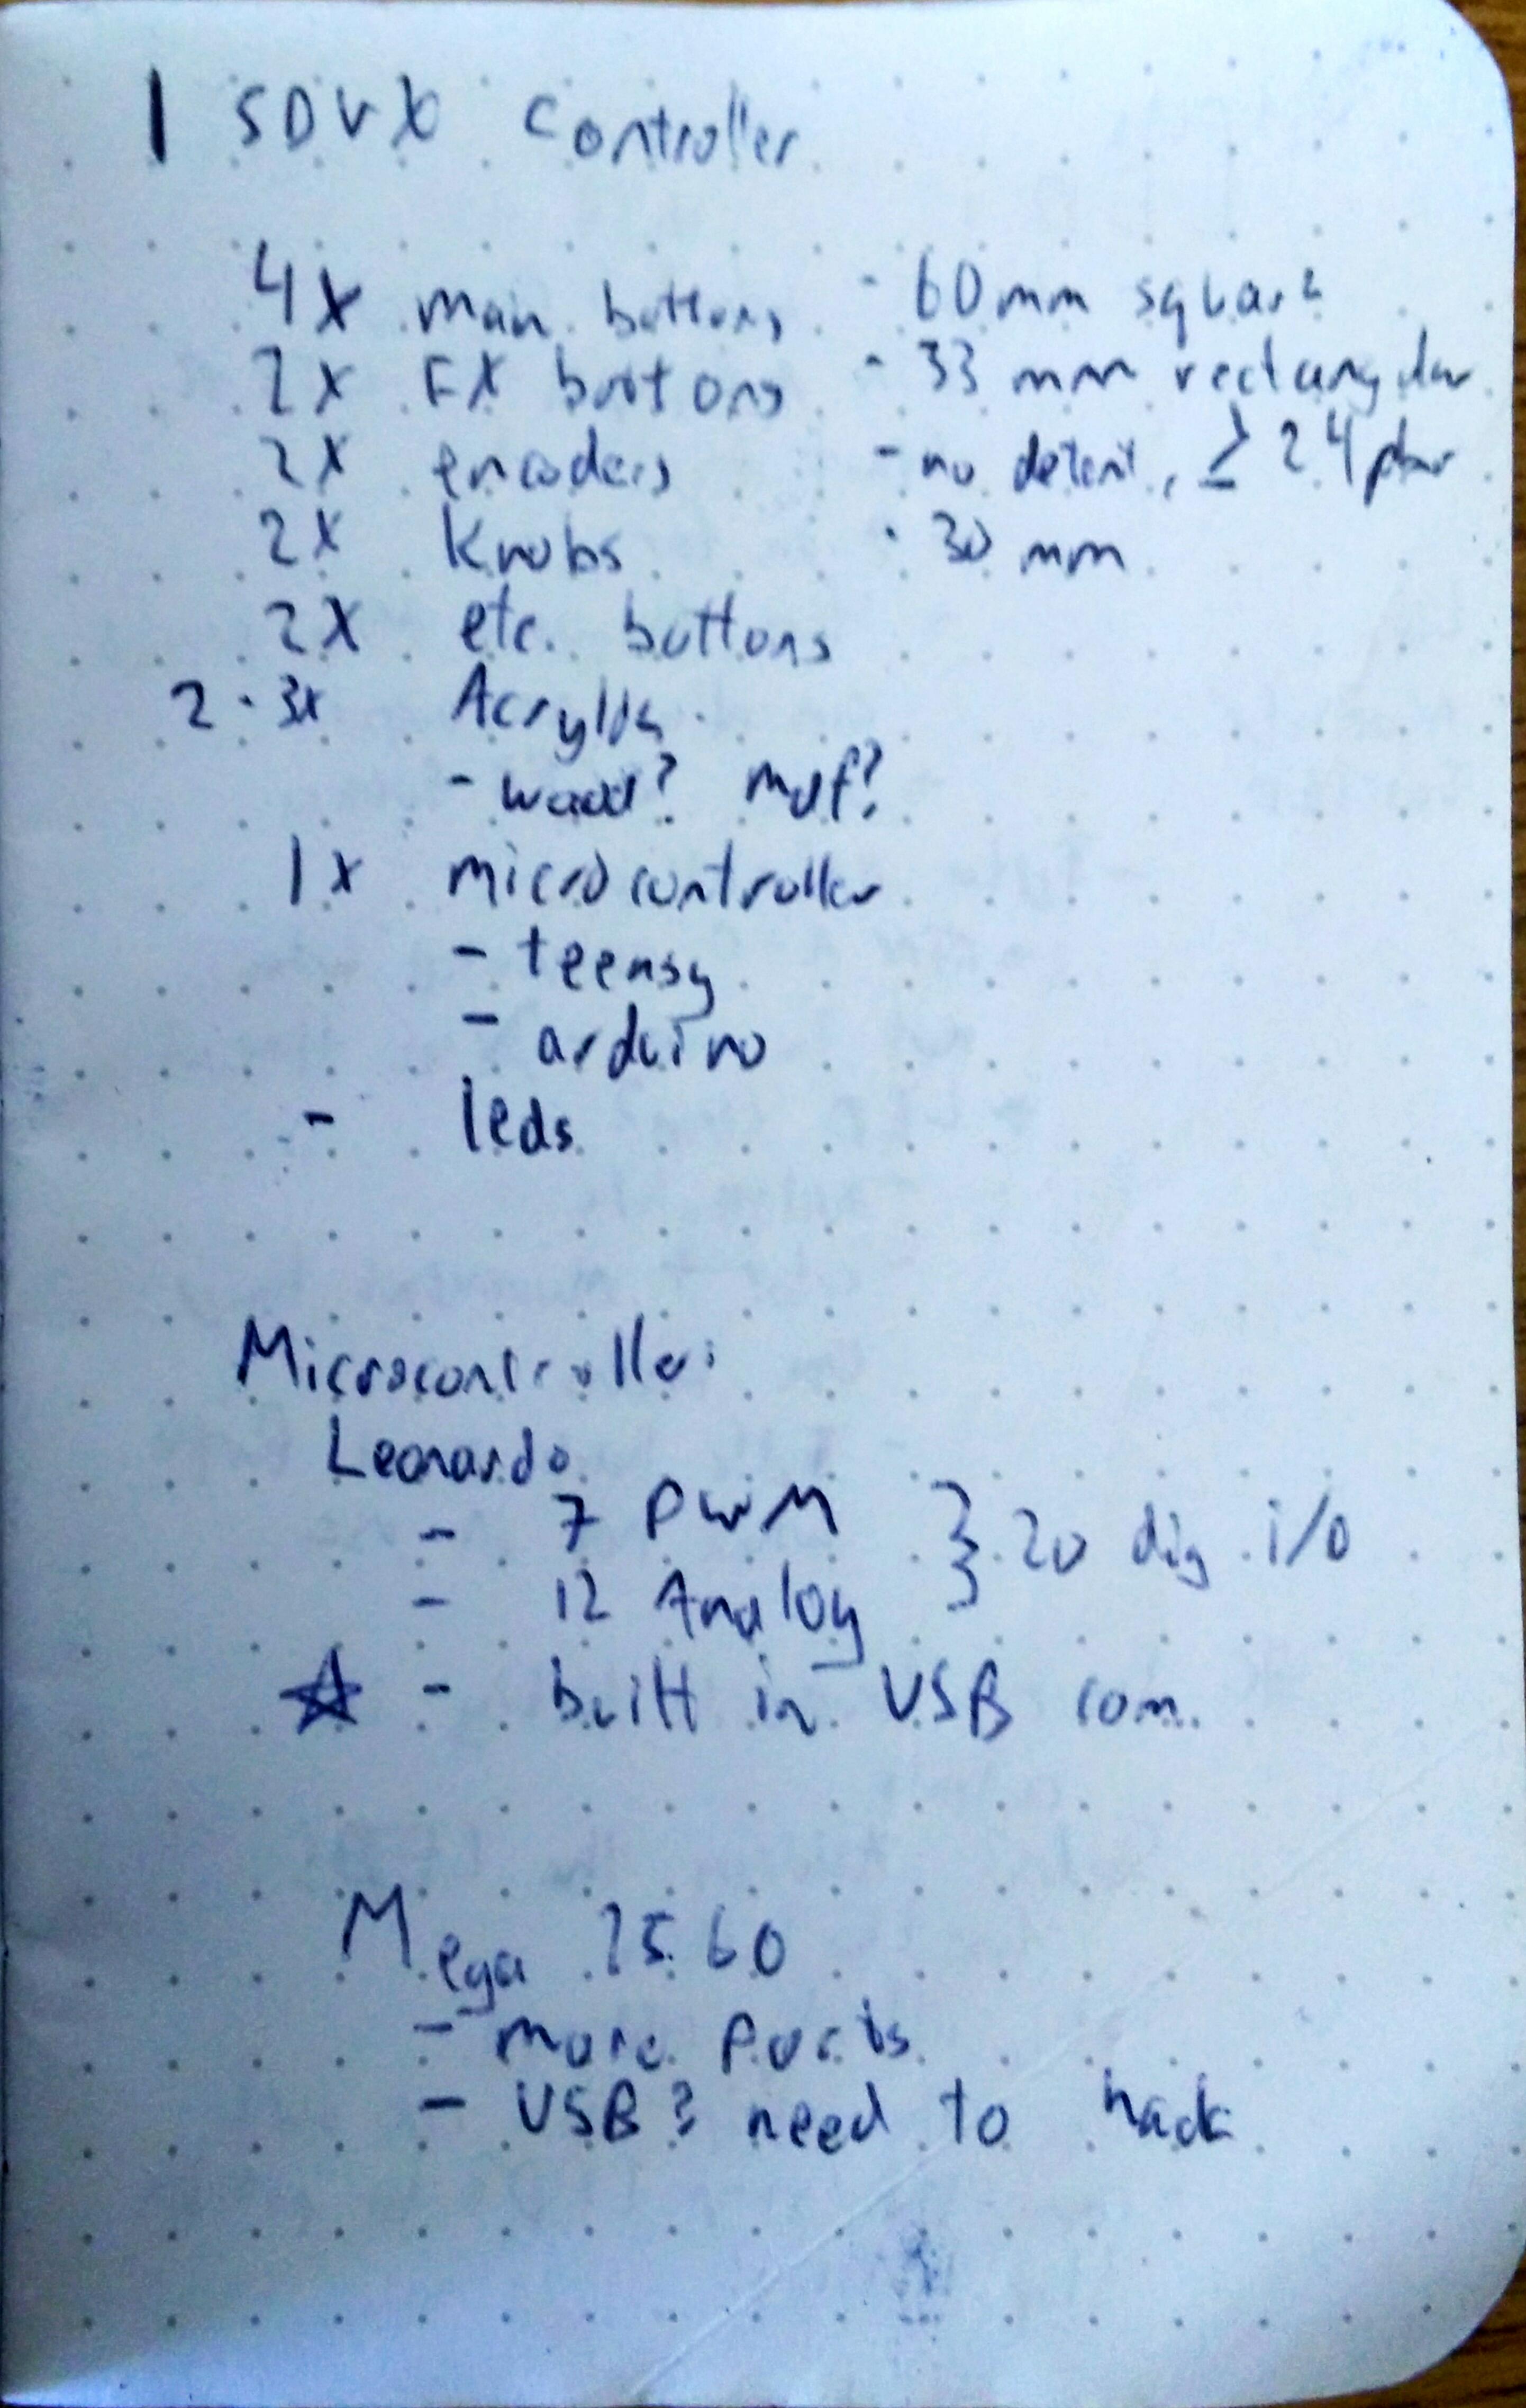 1 SDVX Controller
4x main buttons - 60mm square
2x FX buttons - 33 mm rectangular
2x encoders - no detent, ≥ 24
2x Knobs - 30 mm
2x etc. buttons
2-3x
- wood? Mdf?
1x microcontroller
- teensy
- arduino
- leds
Microcontroller:
Leonardo
- 7 PWM } 20 dig i/o
- 12 Analog
☆ - built in USB com.
Mega 2560
- more ports
- USB? need to hack